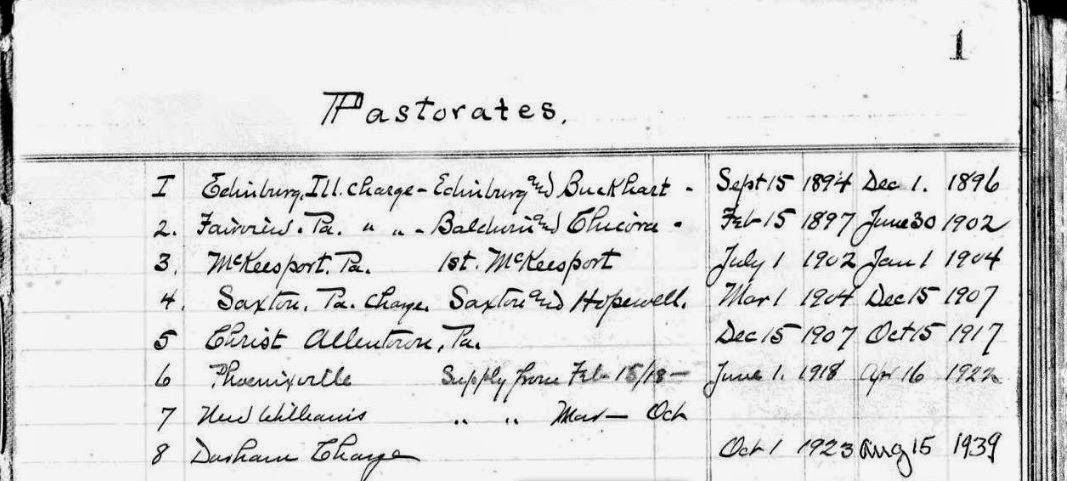 1
Pastorates.
I Edinburg, Ill. Charge - Edinburg and Buckhart - Sept 15 1894 Dec 1. 1896
2. Fairview. Pa. " " - Baldwin and Chicora - Feb 15 1897 June 30 1902
3. McKeesport. Pa. 1st. McKeesport July 1 1902 Jan 1 1904
4. Saxton, Pa. Charge. Saxton and Hopewell. Mar 1 1904 Dec 15 1907
5 Christ Allentown, Pa. Dec 15 1907 Oct 15 1917
6 Phoenixville Supply from Feb 15/18 - June 1. 1918 Apr 16 1922
7 New Williams " " Mar - Oct
8 Durham Charge Oct 1 1923 Aug 15 1939